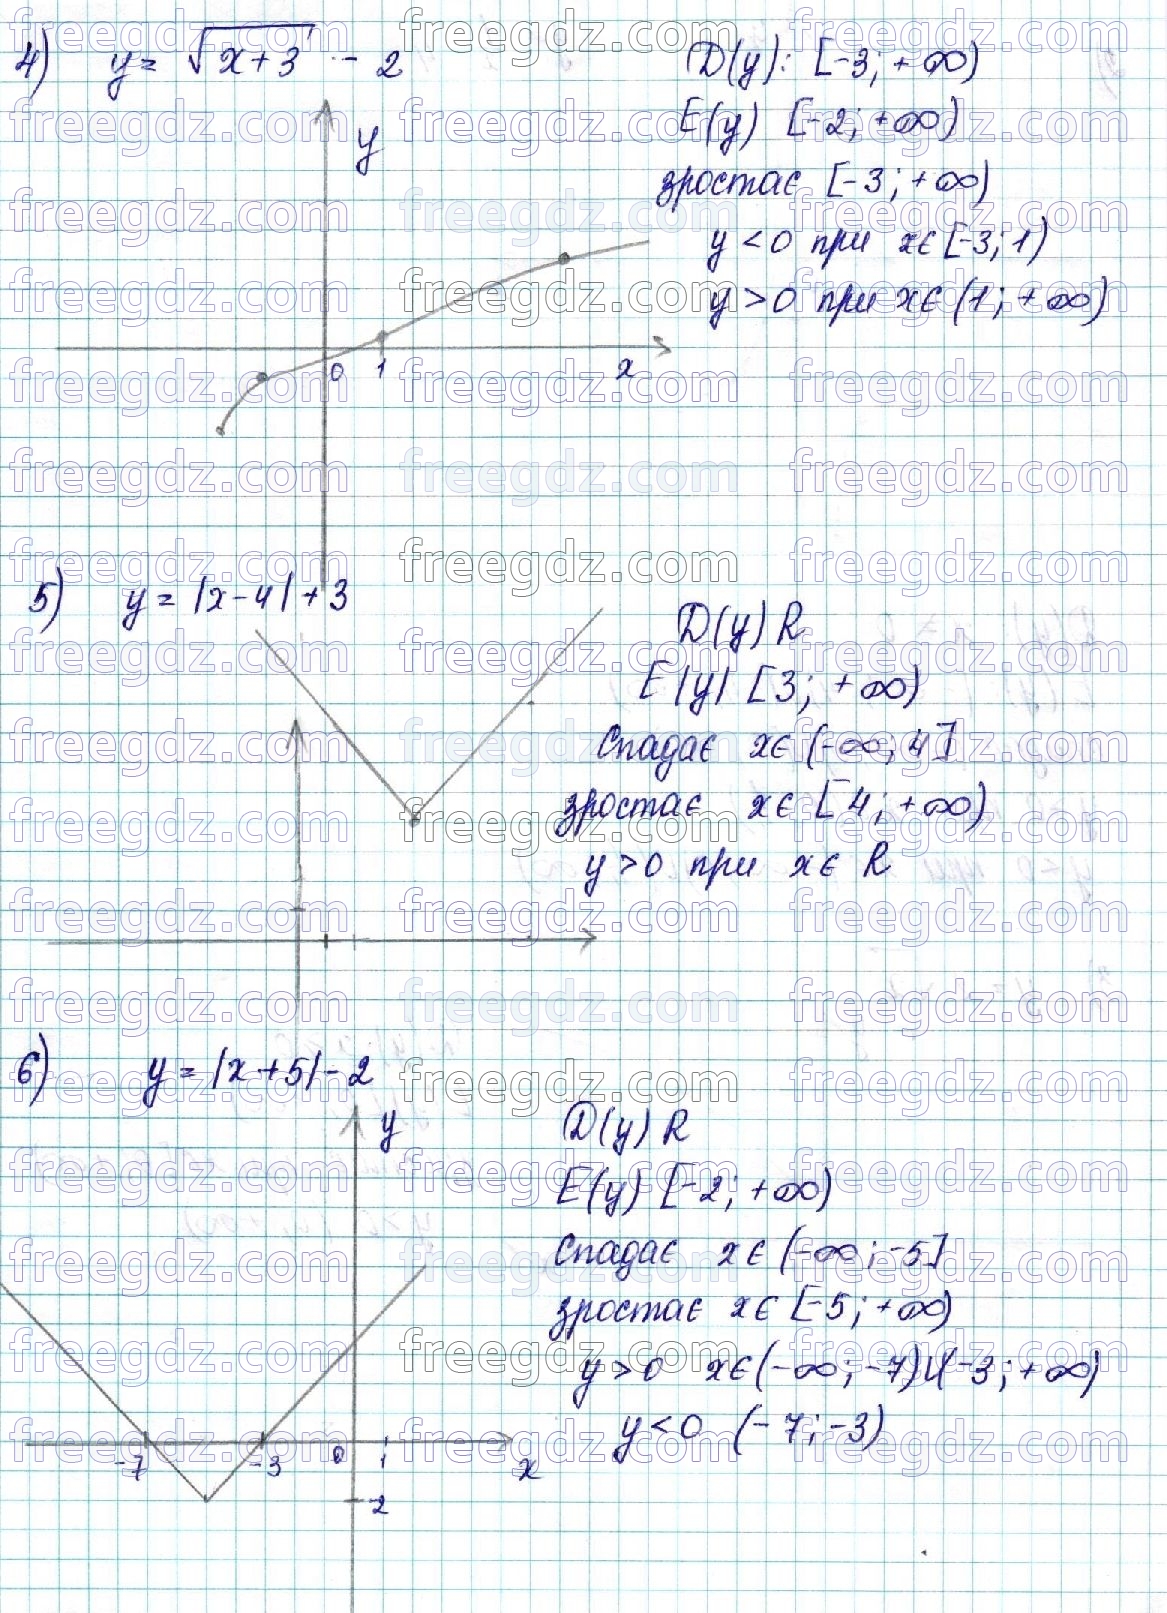 4) y = √x+3 - 2
D(y): [-3; +∞)
E(y) [-2; +∞)
зростає [-3; +∞)
y < 0 при x ∈ [-3; 1)
y > 0 при x ∈ (1; +∞)
y
0 1 x
5) y = |x-4| + 3
D(y) R
E(y) [3; +∞)
Спадає x ∈ (-∞; 4]
зростає x ∈ [4; +∞)
y > 0 при x ∈ R
6) y = |x+5| - 2
D(y) R
E(y) [-2; +∞)
Спадає x ∈ (-∞; -5]
зростає x ∈ [-5; +∞)
y > 0 x ∈ (-∞; -7) U (-3; +∞)
y < 0 (-7; -3)
y
-7 -3 0 1 x
-2
freegdz.com